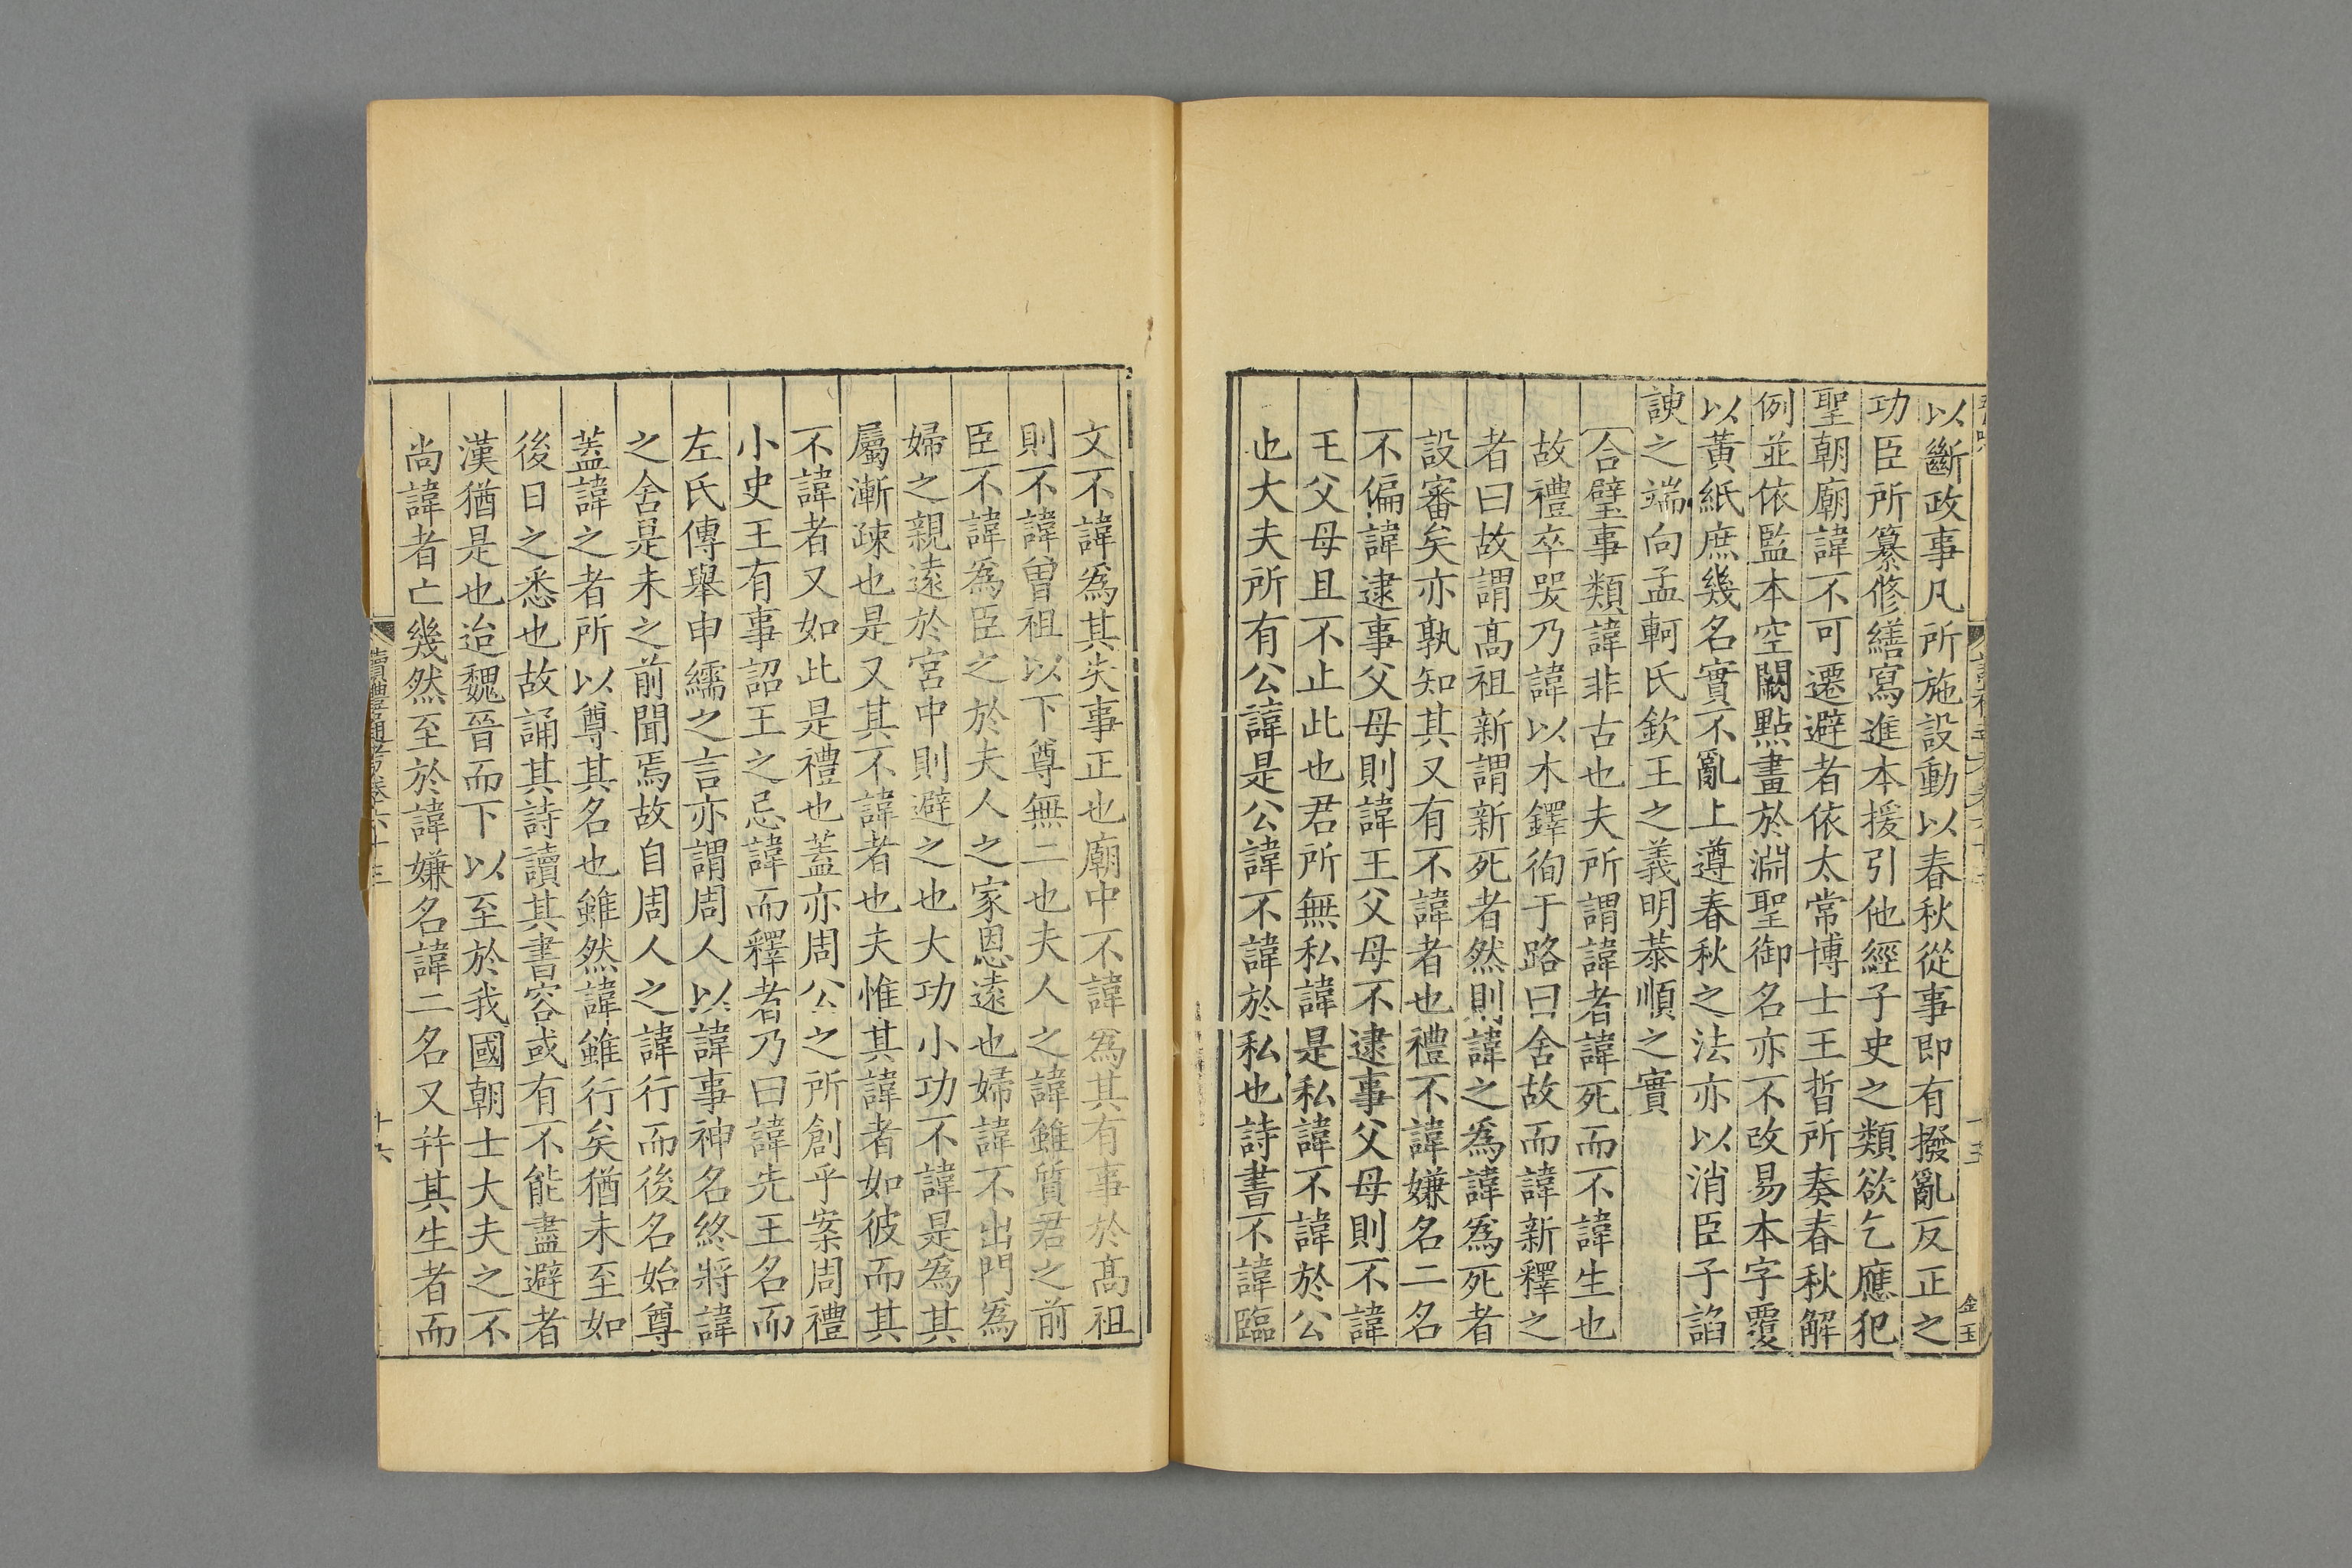 以斷政事凡所施設動以春秋從事即有撥亂反正之
功臣所纂修繕寫進本援引他經子史之類欲乞應犯
聖朝廟諱不可遷避者依太常博士王晳所奏春秋解
例並依監本空闕點畫於淵聖御名亦不改易本字覆
以黃紙庶幾名實不亂上遵春秋之法亦以消臣子諂
諛之端向孟軻氏欽王之義明恭順之實
合璧事類諱非古也夫所謂諱者諱死而不諱生也
故禮卒哭乃諱以木鐸徇于路曰舍故而諱新釋之
者曰故謂髙祖新謂新死者然則諱之為諱爲死者
設審矣亦孰知其又有不諱者也禮不諱嫌名二名
不偏諱逮事父母則諱王父母不逮事父母則不諱
王父母且不止此也君所無私諱是私諱不諱於公
也大夫所有公諱是公諱不諱於私也詩書不諱臨
文不諱爲其失事正也廟中不諱爲其有事於髙祖
則不諱曽祖以下尊無二也夫人之諱雖質君之前
臣不諱爲臣之於夫人之家恩遠也婦諱不出門爲
婦之親遠於宮中則避之也大功小功不諱是爲其
屬漸疎也是又其不諱者也夫惟其諱者如彼而其
不諱者又如此是禮也蓋亦周公之所創乎案周禮
小史王有事詔王之忌諱而釋者乃曰諱先王名而
左氏傳舉申繻之言亦謂周人以諱事神名終將諱
之舍是未之前聞焉故自周人之諱行而後名始尊
蓋諱之者所以尊其名也雖然諱雖行矣猶未至如
後日之悉也故誦其詩讀其書容或有不能盡避者
漢猶是也迨魏晉而下以至於我國朝士大夫之不
尚諱者亡幾然至於諱嫌名諱二名又幷其生者而
讀禮通考卷六十三
十六
金玉